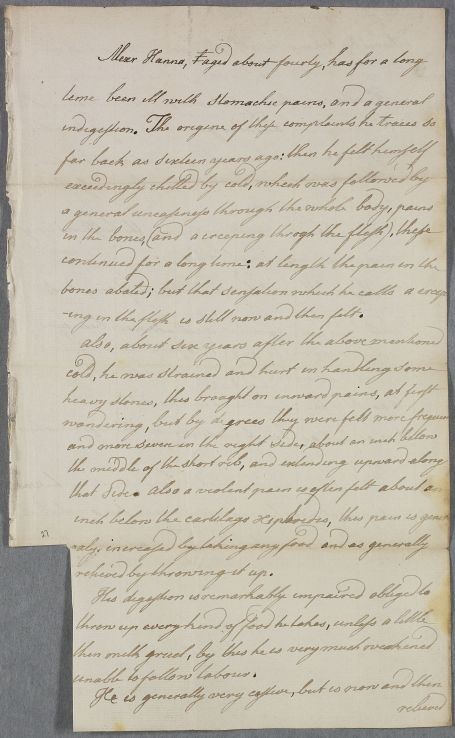 Alexr Hanna, aged about fourty, has for a long
time been ill with stomachic pains, and a general
indigestion. The origine of these complaints he traces so
far back as sixteen years ago: then he felt himself
exceedingly chilled by cold, which was followed by
a general uneasiness through the whole body, pains
in the bones, (and a creeping throgh the flesh), these
continued for a long time: at length the pain in the
bones abated; but that sensation which he calls a creep
-ing in the flesh is still now and then felt.
Also, about six years after the above mentioned
cold, he was strained and hurt in handling some
heavy stones, this brought on inward pains, at first
wandering, but by degrees they were felt more frequen
and more severe in the right side, about an inch bellow
the middle of the short rib, and extending upward along
that side. Also a violent pain is often felt about an
inch below the cartilago, this pain is gene
raly, increased by taking any food and as generally
relieved by throwing it up.
27
His digestion is remarkably impaired obliged to
throw up every kind of food he takes, unless a little
thin milk gruel, by this he is very much weakened
unable to follow labour.
He is generally very costive, but is now and then
relieved